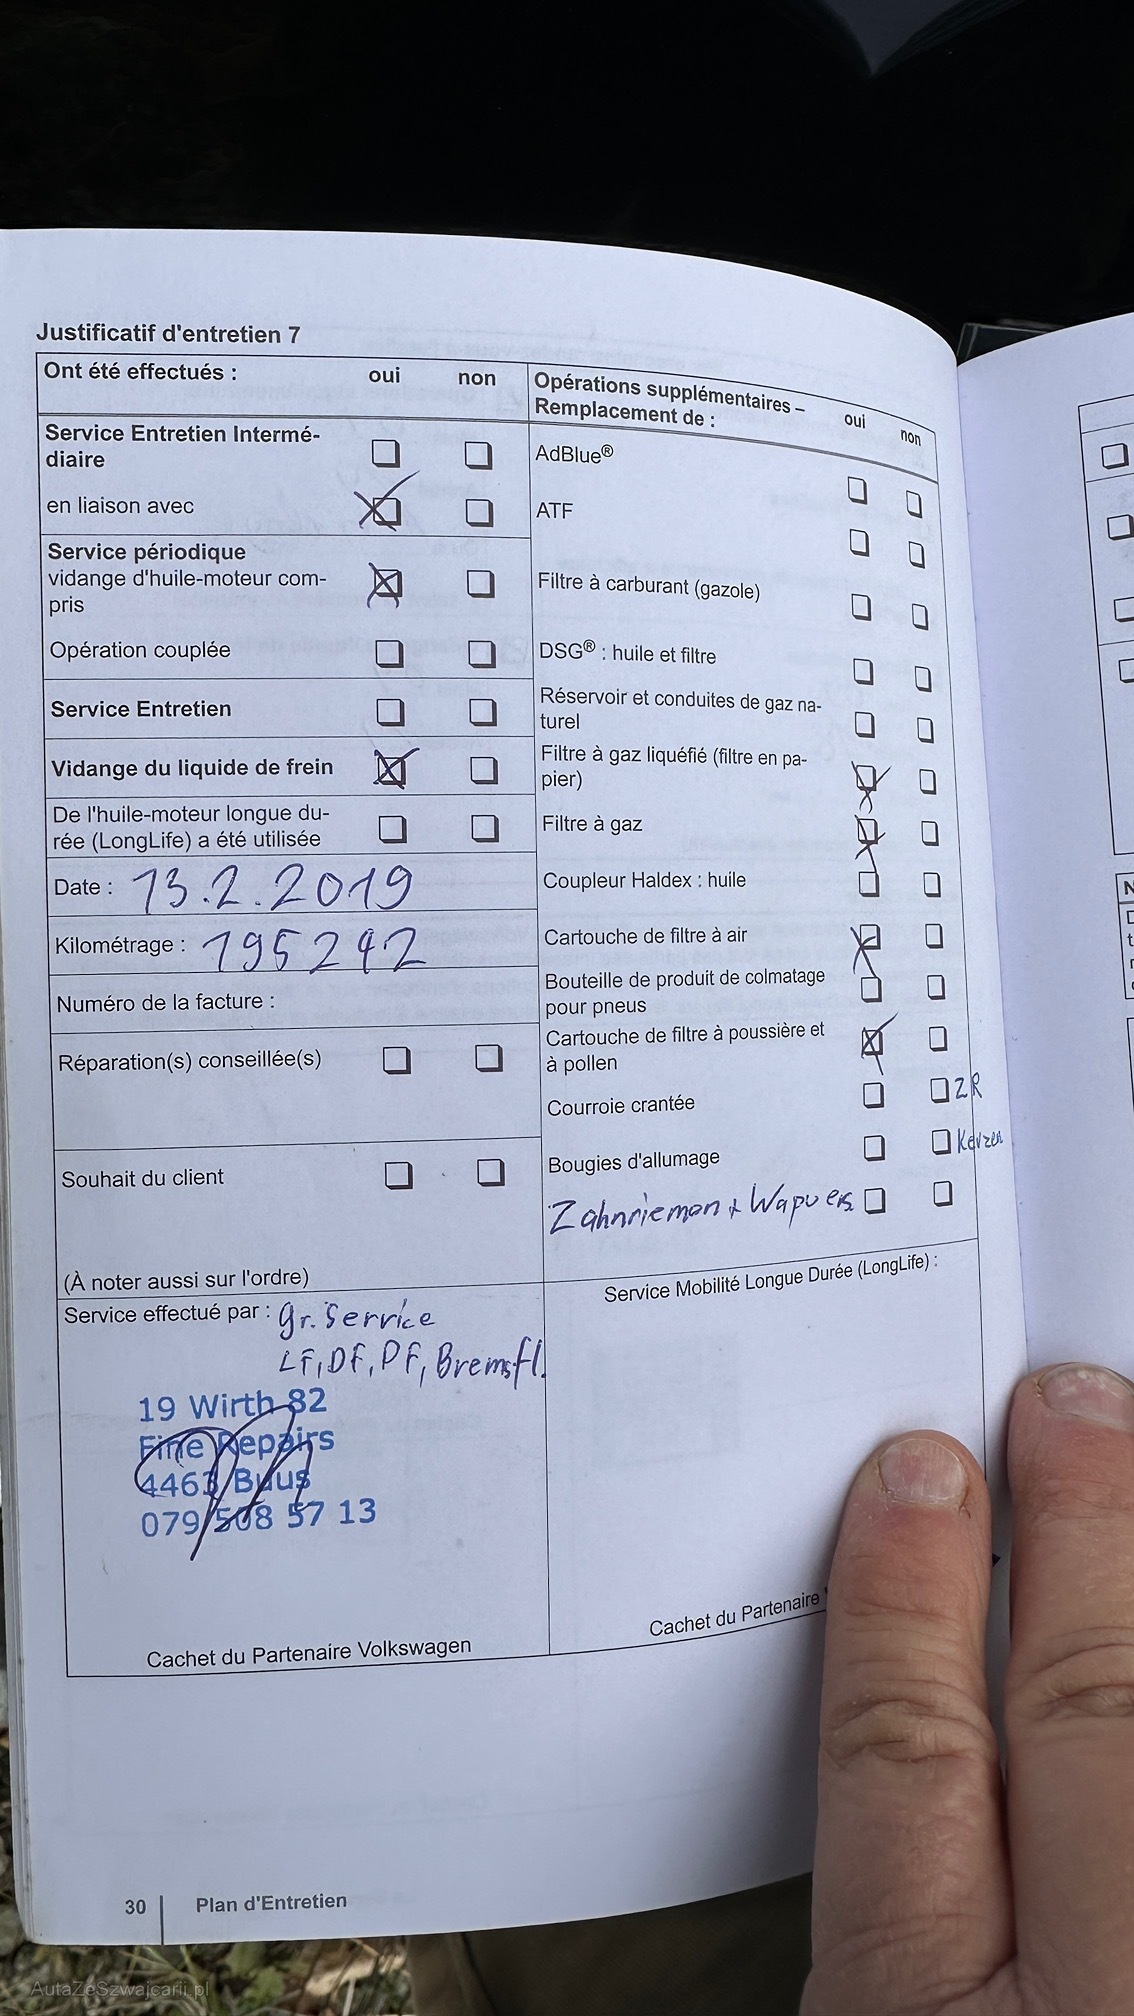 Justificatif d'entretien 7
Ont été effectués : oui non
Service Entretien Intermé-
diaire
en liaison avec
Service périodique
vidange d'huile-moteur com-
pris
Opération couplée
Service Entretien
Vidange du liquide de frein
De l'huile-moteur longue du-
rée (LongLife) a été utilisée
Date : 13.2.2019
Kilométrage : 195242
Numéro de la facture :
Réparation(s) conseillée(s)
Souhait du client
(À noter aussi sur l'ordre)
Opérations supplémentaires –
Remplacement de : oui non
AdBlue®
ATF
Filtre à carburant (gazole)
DSG® : huile et filtre
Réservoir et conduites de gaz na-
turel
Filtre à gaz liquéfié (filtre en pa-
pier)
Filtre à gaz
Coupleur Haldex : huile
Cartouche de filtre à air
Bouteille de produit de colmatage
pour pneus
Cartouche de filtre à poussière et
à pollen
Courroie crantée ZR
Bougies d'allumage Kerzen
Zahnriemen +
Service effectué par : gr. Service
LF, DF, PF, Bremsfl.
19 Wirth 82
Fine Repairs
4463 Buus
079 508 57 13
Cachet du Partenaire Volkswagen
Service Mobilité Longue Durée (LongLife) :
Cachet du Partenaire
30 Plan d'Entretien
AutaZeSzwajcarii.pl